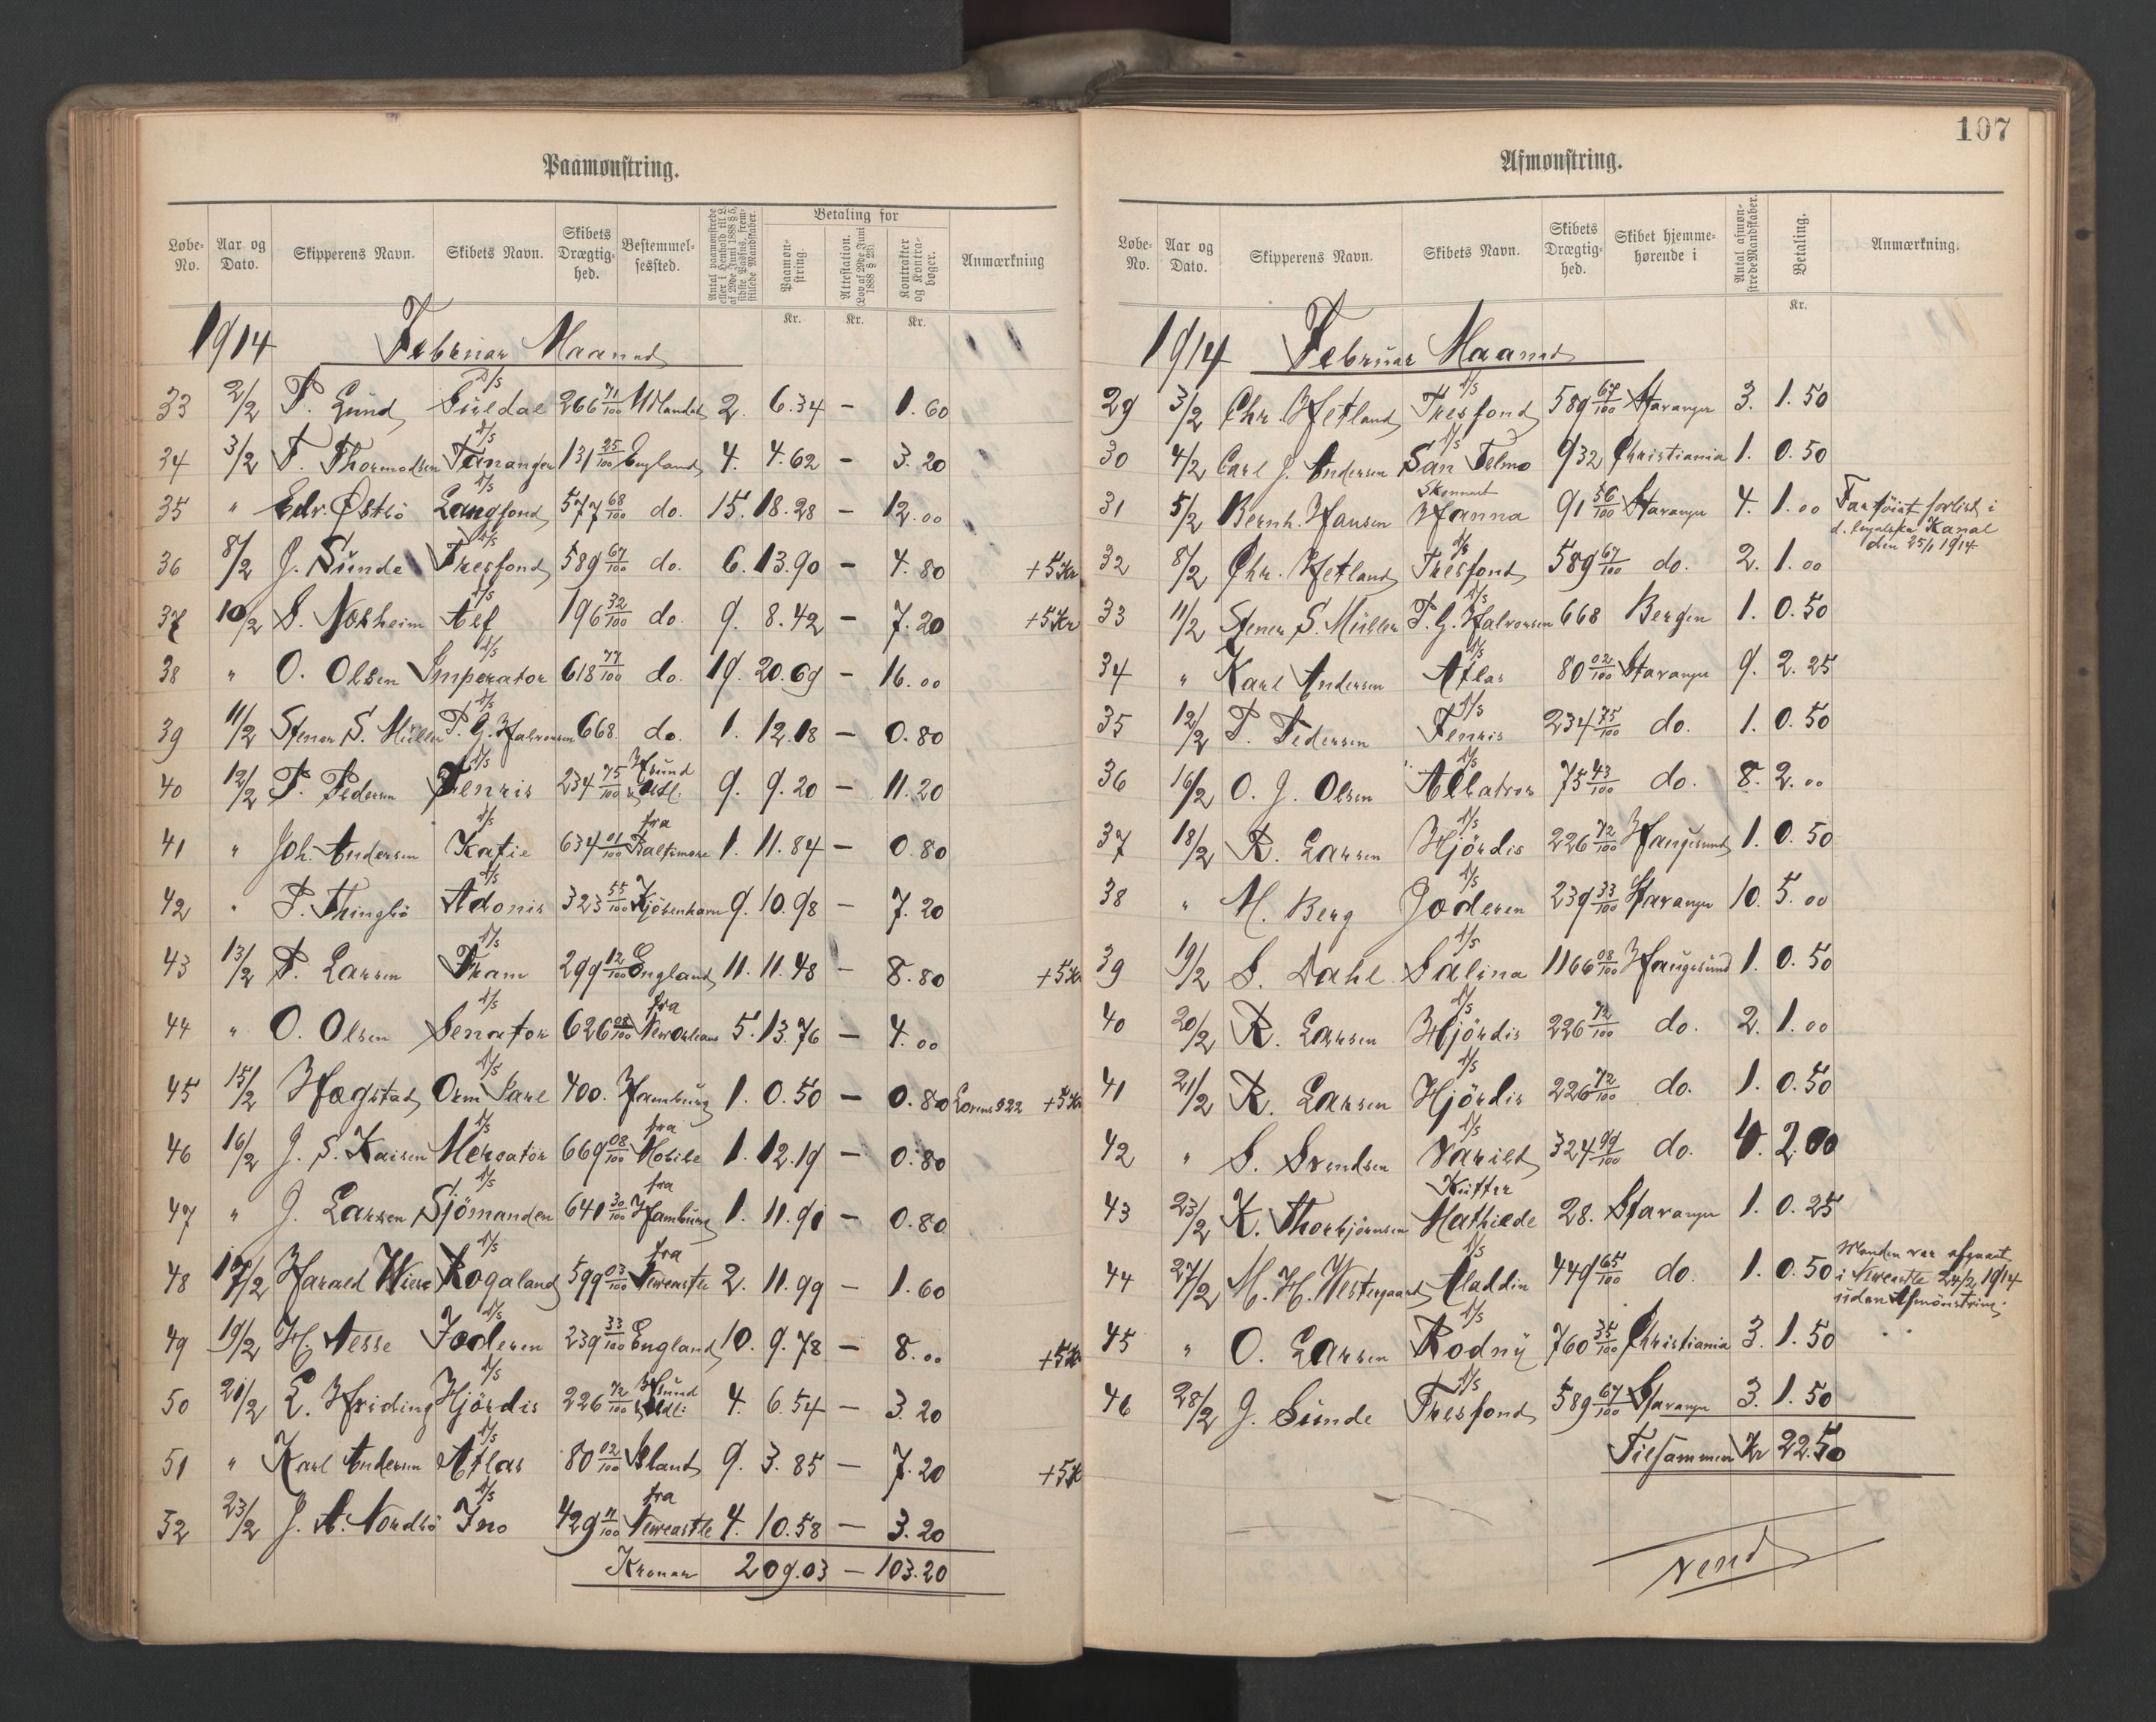 107
Paamønstring.
Løbe-No. Aar og Dato. Skipperens Navn. Skibets Navn. Skibets Drægtighed. Bestemmelsessted. Antal paamønstrede eller i Henhold til L. af 29de Juni 1888 § 5, sidste Passus, fremstillede Mandskaber. Betaling for Paamønstring. Attestation. (Lov af 29de Juni 1888 § 28). Kontrakter og Kontrabøger. Anmærkning
Kr. Kr. Kr.
1914 Februar Maaned
33 2/2 P. Lund D/S Suldal 266 71/100 Udlandet 2. 6.34 — 1.60
34 3/2 T. Thormodsen D/S Tananger 131 25/100 England 4. 4.62 — 3.20
35 " Edv. Østbö D/S Langfond 577 68/100 do. 15. 18.28 — 12.00
36 8/2 J. Sunde D/S Tresfond 589 67/100 do. 6. 13.90 — 4.80 +5 Kr
37 10/2 S. Norheim D/S Alf 196 32/100 do. 9. 8.42 — 7.20 +5 Kr
38 " O. Olsen D/S Imperator 618 77/100 do. 19. 20.69 — 16.00
39 11/2 Stener S. Müller D/S P. G. Halvorsen 668 do. 1. 12.18 — 0.80
40 12/2 P. Pedersen D/S Fenris 234 75/100 Hsund 9. 9.20 — 11.20
41 " Joh. Andersen D/S Katie 634 01/100 fra Baltimore 1. 11.84 — 0.80
42 " P. Thingbö D/S Adonis 323 55/100 Kjöbenhavn 9. 10.98 — 7.20
43 13/2 P. Larsen D/S Fram 299 12/100 England 11. 11.48 — 8.80 +5 Kr
44 " O. Olsen D/S Senator 626 08/100 fra Neworleans 5. 13.76 — 4.00
45 15/2 Hogstad D/S Orm Jarl 400. Hamburg 1. 0.50 — 0.80 +5 Kr
46 16/2 J. S. Kaisen D/S Mercator 669 08/100 fra Mobile 1. 12.19 — 0.80
47 " J. Larsen D/S Sjömanden 641 30/100 fra Hamburg 1. 11.91 — 0.80
48 17/2 Harald Wiese D/S Rogaland 599 03/100 fra Newcastle 2. 11.99 — 1.60
49 19/2 H. Nesse D/S Joderen 239 33/100 England 10. 9.78 — 8.00 +5 Kr
50 21/2 E. Hviding D/S Hjördis 226 72/100 Hsund 4. 6.54 — 3.20
51 " Karl Andersen D/S Atlas 80 02/100 Island 9. 3.85 — 7.20 +5 K
52 23/2 J. A. Nordbö D/S Ino 429 71/100 fra Newcastle 4. 10.58 — 3.20
Kroner 209.03 — 103.20
Afmønstring.
Løbe-No. Aar og Dato. Skipperens Navn. Skibets Navn. Skibets Drægtighed. Skibet hjemmehørende i Antal afmønstrede Mandskaber. Betaling. Anmærkning.
Kr.
1914 Februar Maaned
29 3/2 Chr. Hetland D/S Tresfond 589 67/100 Stavanger 3. 1.50
30 4/2 Carl J. Andersen D/S San Telmo 932 Christiania 1. 0.50
31 5/2 Bernh. Hansen Skonnert Hanna 91 56/100 Stavanger 4. 1.00 Fartöiet forlist i
d. engelske Kanal
den 25/1 1914
32 8/2 Chr. Hetland D/S Tresfond 589 67/100 do. 2. 1.00
33 11/2 Stener S. Müller D/S P. G. Halvorsen 668 Bergen 1. 0.50
34 " Karl Andersen D/S Atlas 80 02/100 Stavanger 9. 2.25
35 12/2 P. Pedersen D/S Fenris 234 75/100 do. 1. 0.50
36 16/2 O. J. Olsen D/S Albatros 75 43/100 do. 8. 2.00
37 18/2 R. Larsen D/S Hjördis 226 72/100 Haugesund 1. 0.50
38 " M. Berg D/S Joderen 239 33/100 Stavanger 10. 5.00
39 19/2 S. Dahl D/S Salina 1166 08/100 Haugesund 1. 0.50
40 20/2 R. Larsen D/S Hjördis 226 72/100 do. 2. 1.00
41 21/2 R. Larsen D/S Hjördis 226 72/100 do. 1. 0.50
42 " S. Svendsen D/S Varild 324 99/100 do. 4. 2.00
43 23/2 K. Thorbjörnsen Kutter Mathilde 28. Stavanger 1. 0.25
44 27/2 M. H. Westergaard D/S Aladdin 449 65/100 do. 1. 0.50 Manden var afgaaet
i Newcastle 24/2 1914
uden Afmönstring.
45 " O. Larsen D/S Rodny 760 35/100 Christiania 3. 1.50
46 28/2 J. Sunde D/S Tresfond 589 67/100 Stavanger 3. 1.50
Tilsammen Kr 22.50
Vend